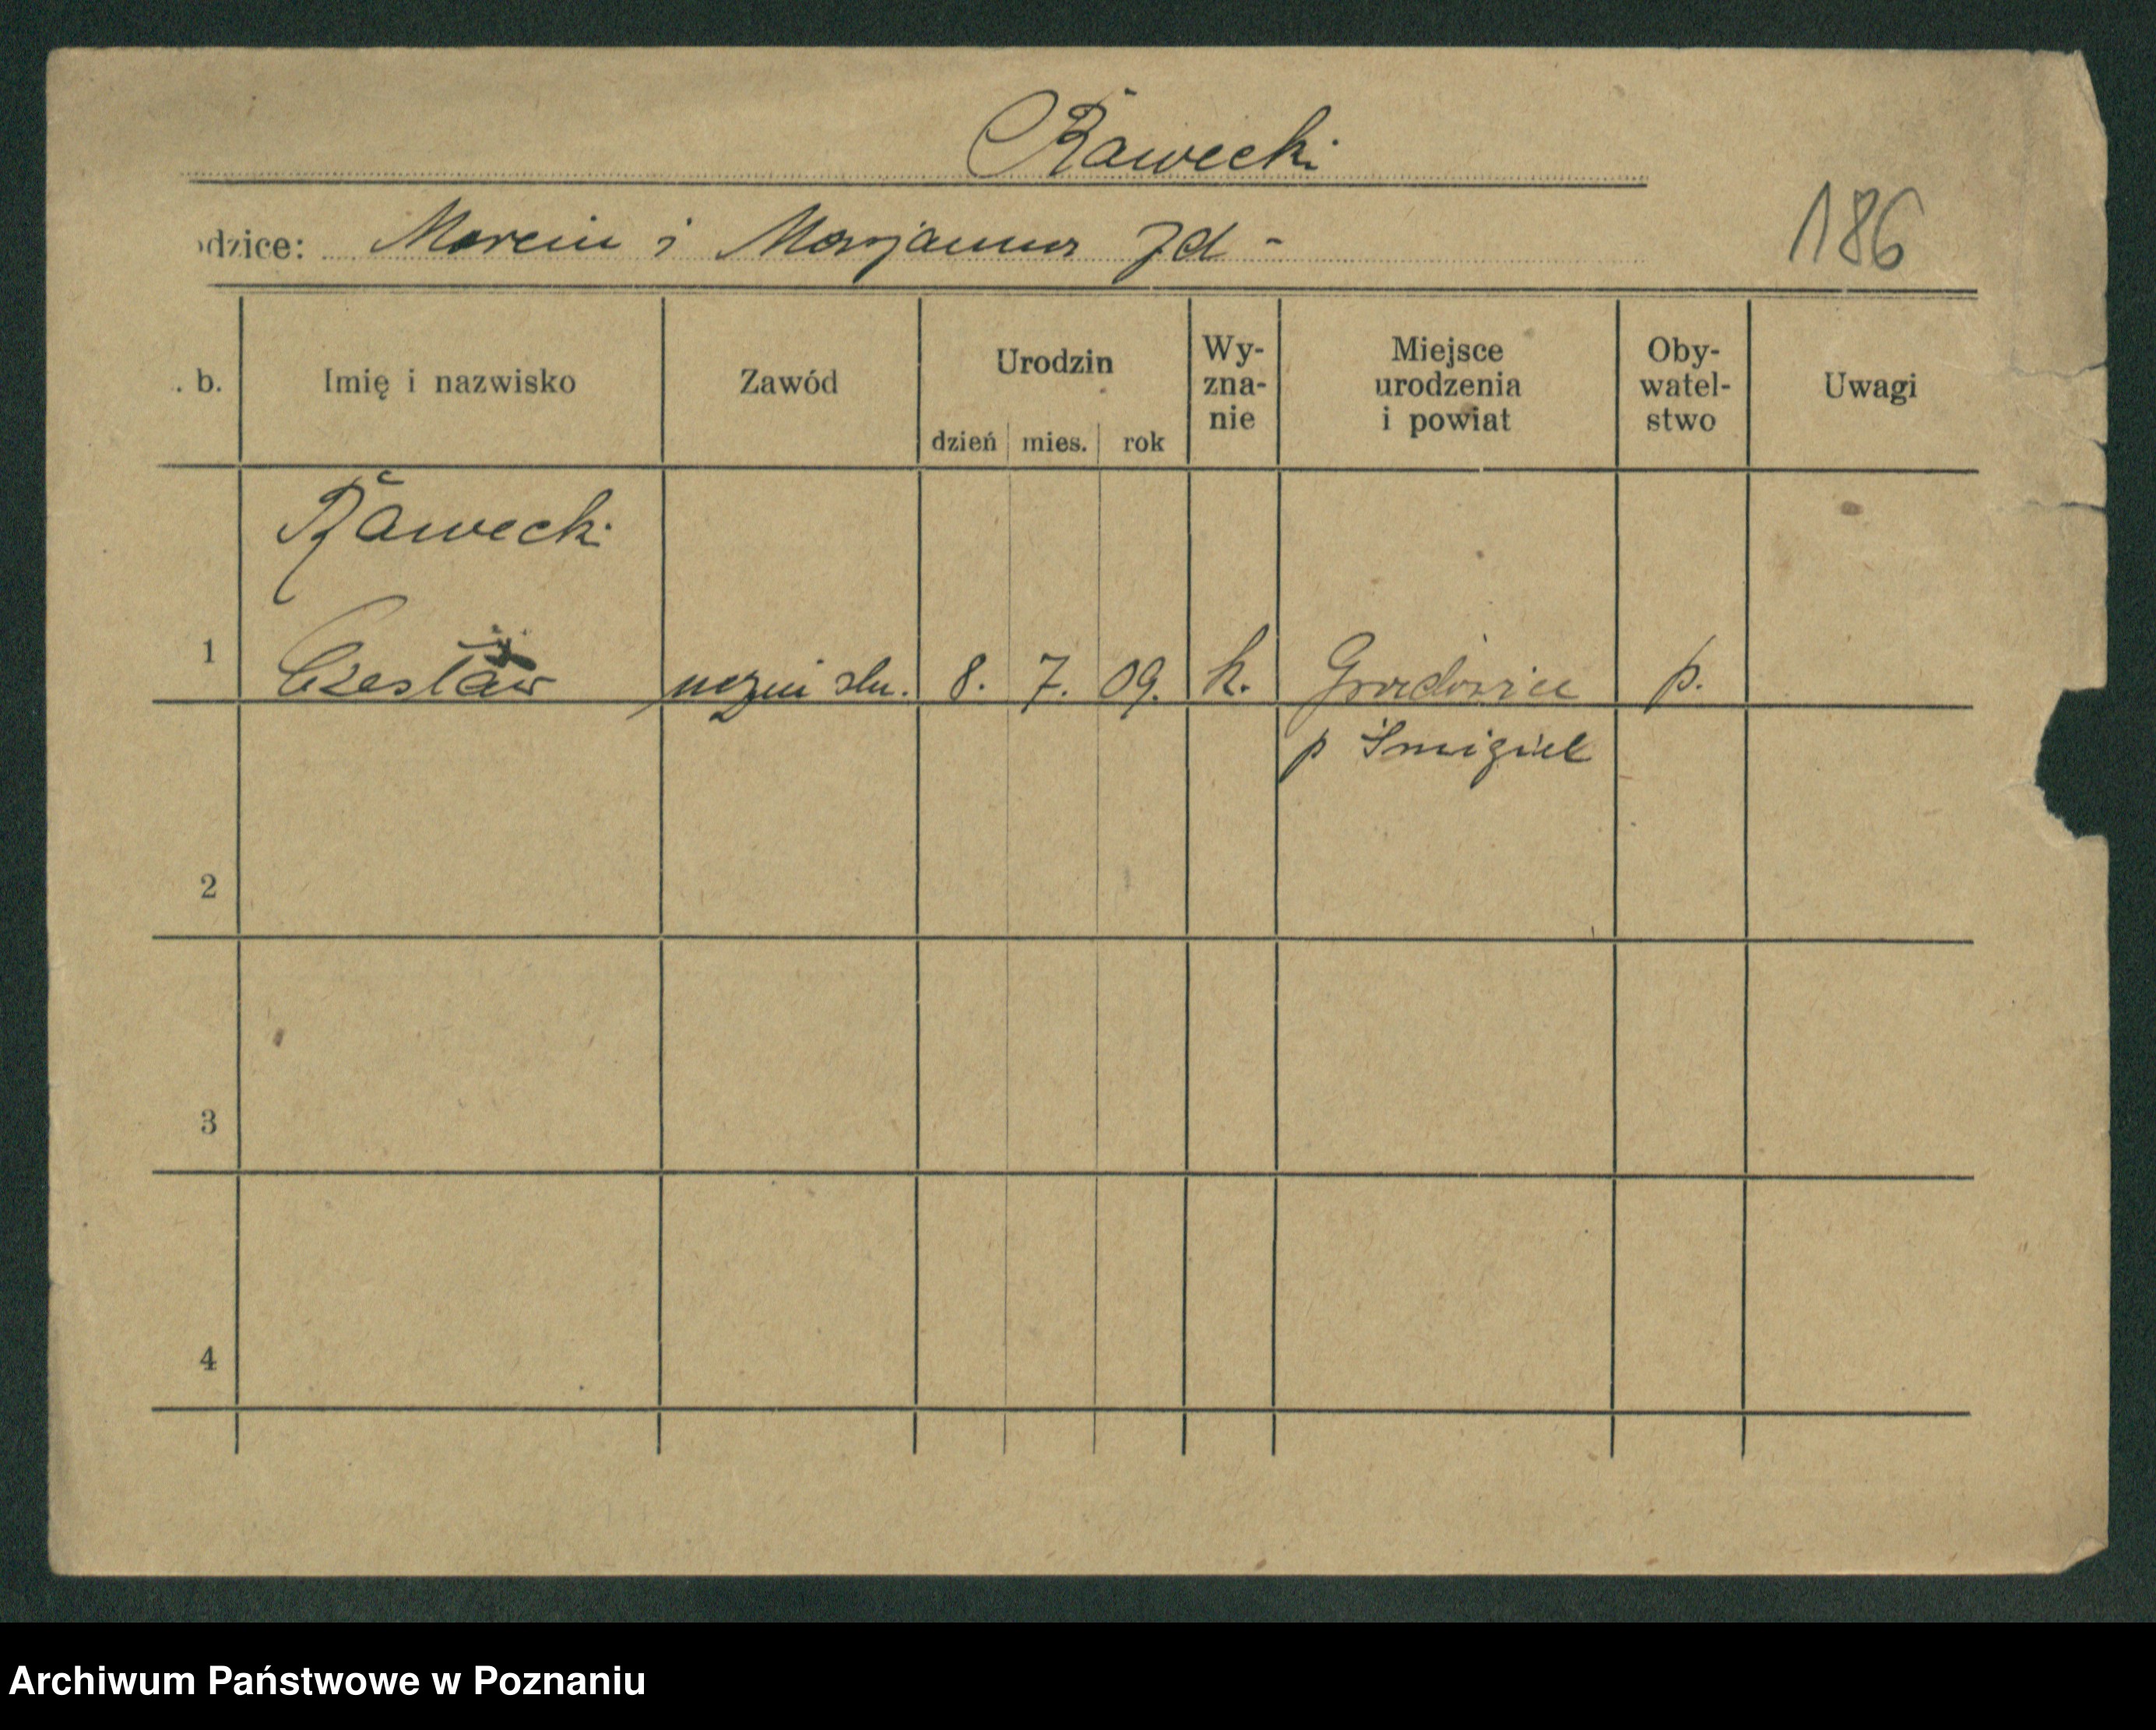 Rawecki
odzice: Marcin i Marjanna Jd -
186
. b.
Imię i nazwisko
Zawód
Urodzin
dzień mies. rok
Wy-
zna-
nie
Miejsce
urodzenia
i powiat
Oby-
watel-
stwo
Uwagi
Rawecki
1 Czesław uczeń 8. 7. 09. k. p.
p Śmigiel
2
3
4
Archiwum Państwowe w Poznaniu